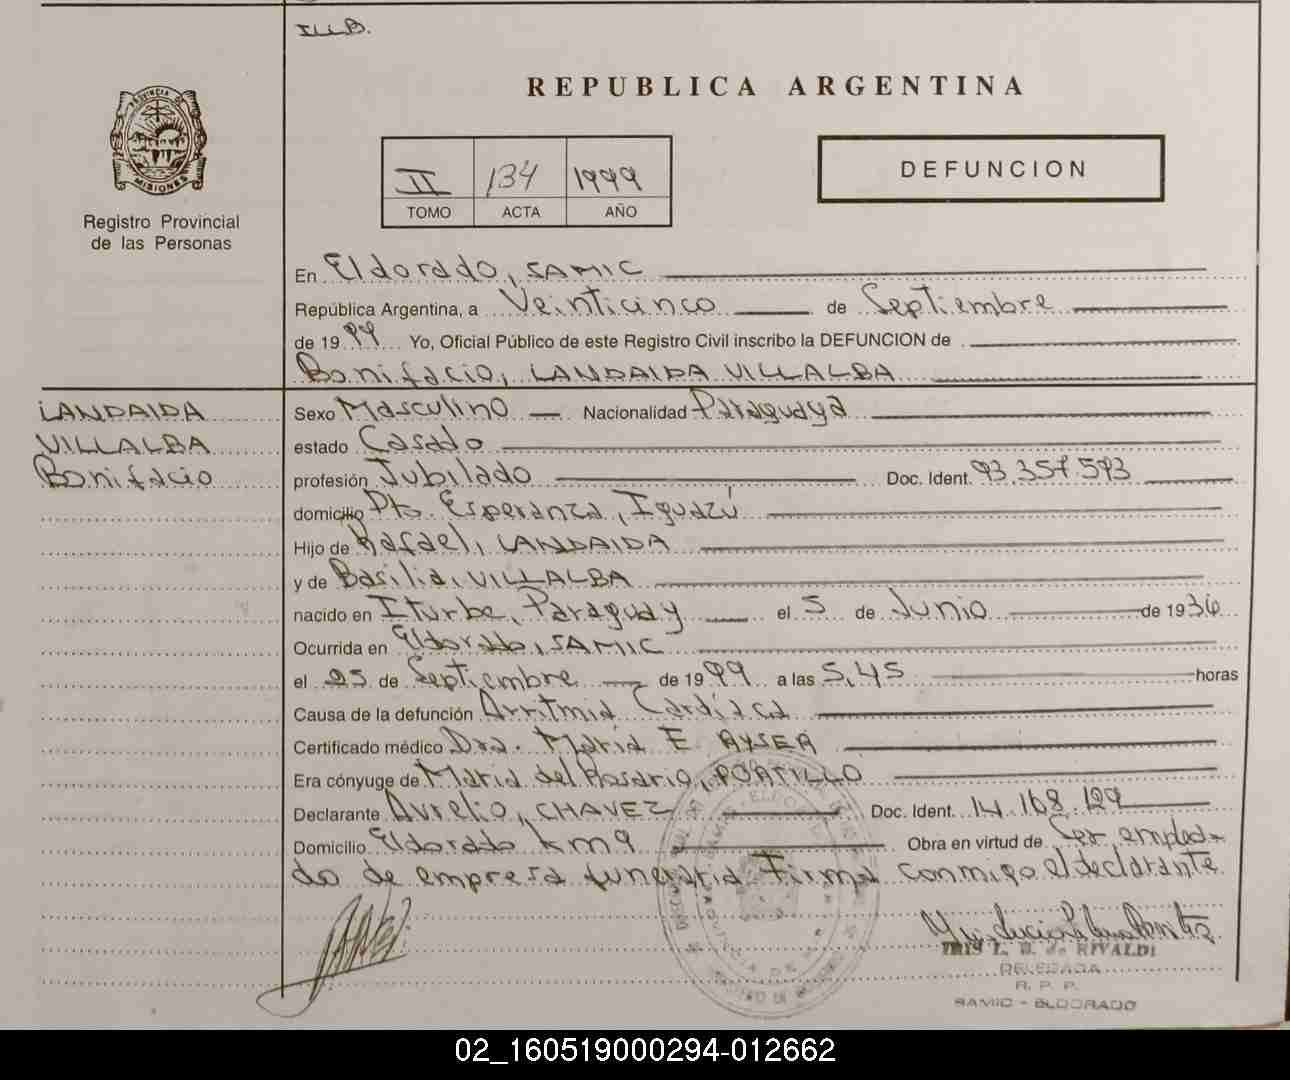 I.L.B.
REPUBLICA ARGENTINA
PROVINCIA DE
MISIONES
Registro Provincial
de las Personas
II 134 1999
TOMO ACTA AÑO
DEFUNCION
En Eldorado, SAMIC
República Argentina, a Veinticinco de Septiembre
de 1999 Yo, Oficial Público de este Registro Civil inscribo la DEFUNCION de
Bonifacio, LANDAIDA VILLALBA
LANDAIDA
VILLALBA
Bonifacio
Sexo Masculino Nacionalidad Paraguaya
estado Casado
profesión Jubilado Doc. Ident. 93.357.593
domicilio Pto. Esperanza, Iguazú
Hijo de Rafael, LANDAIDA
y de Basilia, VILLALBA
nacido en Iturbe, Paraguay el 5 de Junio de 1936
Ocurrida en Eldorado, SAMIC
el 25 de Septiembre de 1999 a las 5,45 horas
Causa de la defunción Arritmia Cardíaca
Certificado médico Dra. Maria E AYSER
Era cónyuge de Maria del Rosario, PORTILLO
Declarante Aurelio, CHAVEZ Doc. Ident. 14.168.129
Domicilio Eldorado km9 Obra en virtud de Ser emplea-
do de empresa funeraria Firma conmigo el declarante
IRIS L. B. de RIVALDI
DELEGADA
R. P. P.
SAMIC - ELDORADO
02_160519000294-012662